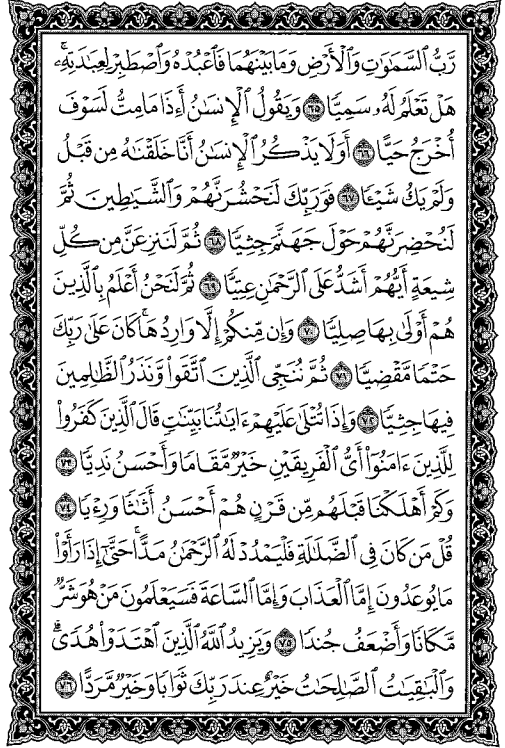 رَّبُّ ٱلسَّمَٰوَٰتِ وَٱلْأَرْضِ وَمَا بَيْنَهُمَا فَٱعْبُدْهُ وَٱصْطَبِرْ لِعِبَٰدَتِهِۦۚ
هَلْ تَعْلَمُ لَهُۥ سَمِيًّا ۝٦٥ وَيَقُولُ ٱلْإِنسَٰنُ أَءِذَا مَا مِتُّ لَسَوْفَ
أُخْرَجُ حَيًّا ۝٦٦ أَوَلَا يَذْكُرُ ٱلْإِنسَٰنُ أَنَّا خَلَقْنَٰهُ مِن قَبْلُ
وَلَمْ يَكُ شَيْـًٔا ۝٦٧ فَوَرَبِّكَ لَنَحْشُرَنَّهُمْ وَٱلشَّيَٰطِينَ ثُمَّ
لَنُحْضِرَنَّهُمْ حَوْلَ جَهَنَّمَ جِثِيًّا ۝٦٨ ثُمَّ لَنَنزِعَنَّ مِن كُلِّ
شِيعَةٍ أَيُّهُمْ أَشَدُّ عَلَى ٱلرَّحْمَٰنِ عِتِيًّا ۝٦٩ ثُمَّ لَنَحْنُ أَعْلَمُ بِٱلَّذِينَ
هُمْ أَوْلَىٰ بِهَا صِلِيًّا ۝٧٠ وَإِن مِّنكُمْ إِلَّا وَارِدُهَاۚ كَانَ عَلَىٰ رَبِّكَ
حَتْمًا مَّقْضِيًّا ۝٧١ ثُمَّ نُنَجِّى ٱلَّذِينَ ٱتَّقَوا۟ وَّنَذَرُ ٱلظَّٰلِمِينَ
فِيهَا جِثِيًّا ۝٧٢ وَإِذَا تُتْلَىٰ عَلَيْهِمْ ءَايَٰتُنَا بَيِّنَٰتٍ قَالَ ٱلَّذِينَ كَفَرُوا۟
لِلَّذِينَ ءَامَنُوٓا۟ أَىُّ ٱلْفَرِيقَيْنِ خَيْرٌ مَّقَامًا وَأَحْسَنُ نَدِيًّا ۝٧٣
وَكَمْ أَهْلَكْنَا قَبْلَهُم مِّن قَرْنٍ هُمْ أَحْسَنُ أَثَٰثًا وَرِءْيًا ۝٧٤
قُلْ مَن كَانَ فِى ٱلضَّلَٰلَةِ فَلْيَمْدُدْ لَهُ ٱلرَّحْمَٰنُ مَدًّاۚ حَتَّىٰٓ إِذَا رَأَوْا۟
مَا يُوعَدُونَ إِمَّا ٱلْعَذَابَ وَإِمَّا ٱلسَّاعَةَ فَسَيَعْلَمُونَ مَنْ هُوَ شَرٌّ
مَّكَانًا وَأَضْعَفُ جُندًا ۝٧٥ وَيَزِيدُ ٱللَّهُ ٱلَّذِينَ ٱهْتَدَوْا۟ هُدًىۗ
وَٱلْبَٰقِيَٰتُ ٱلصَّٰلِحَٰتُ خَيْرٌ عِندَ رَبِّكَ ثَوَابًا وَخَيْرٌ مَّرَدًّا ۝٧٦